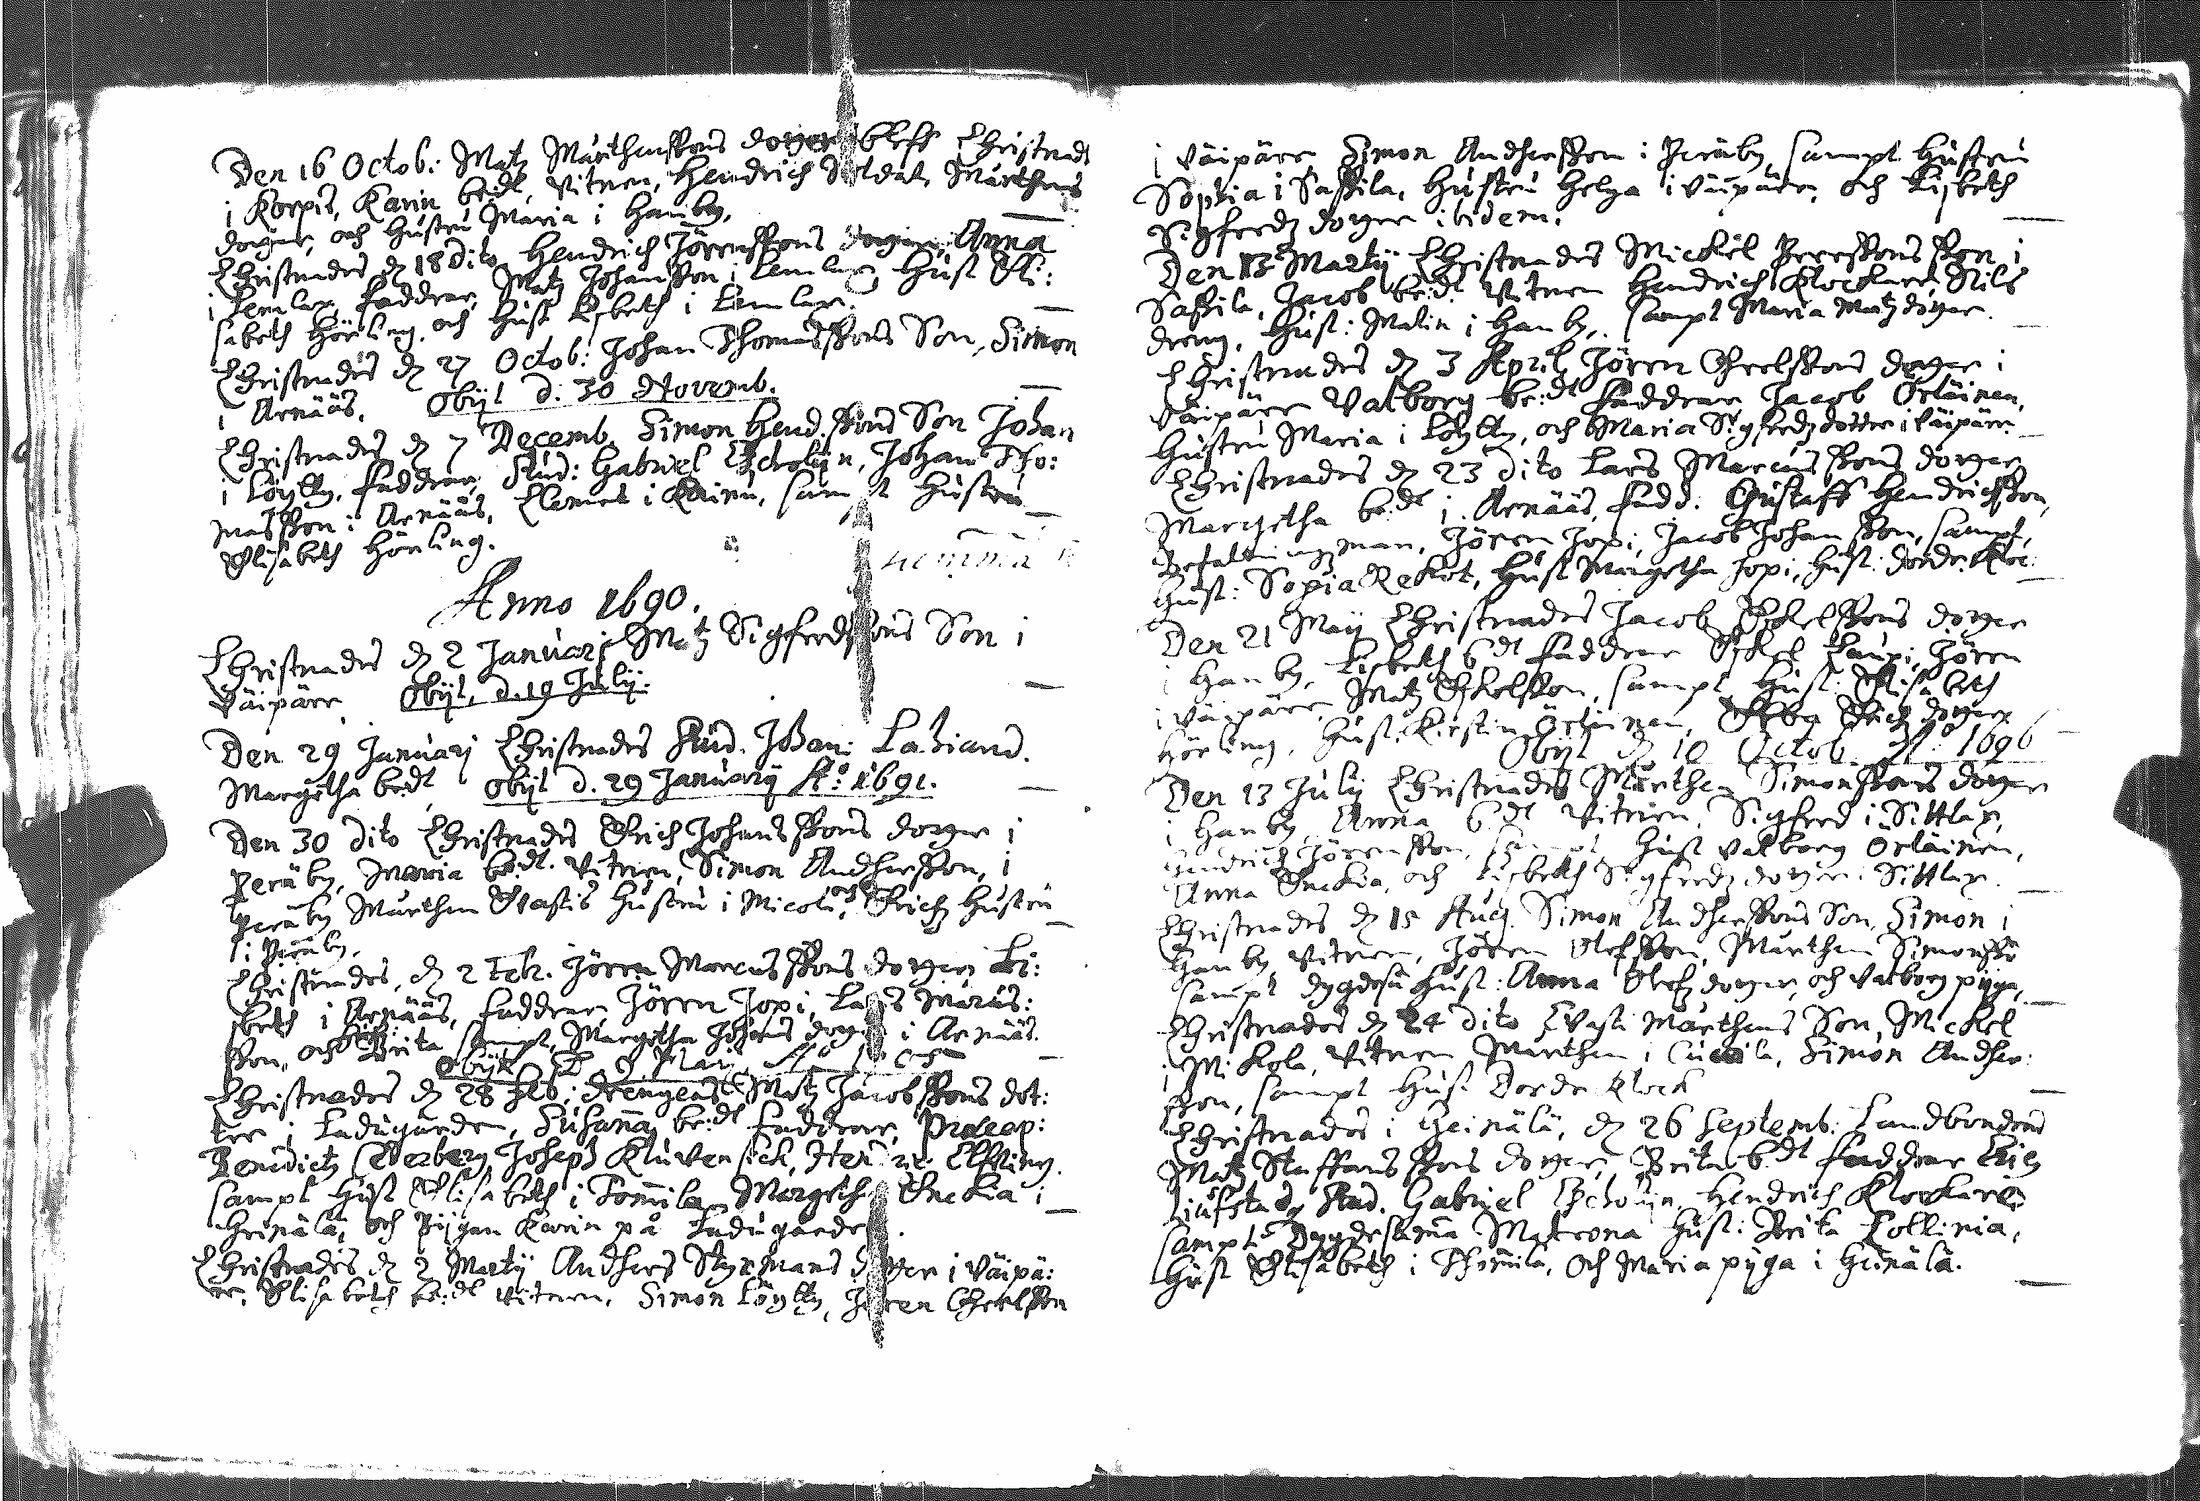 Den 16 Octob: Matz Mårthenssons doter bleff Christnadt
i Korpis, Karin be:dt, Vitnen, Hendrich Soldat, Mårthens
doter, och hustru Maria i Hanby.
Christnades d 18 dito Hendrich Jörenssons doter Anna
i Lemlax, Faddrar, Matz Johansson i Lemlax, Hust Eli:
sabeth Hörling, och Hust Lisbeth i Lemlax.
Christnades d 27 Octob: Johan Thomassons Son, Simon
i Arnääs. Obijt d. 30 Novemb.
Christnades d 7 Decemb. Simon Hend.ssons Son Johan
i Löytty, Faddrar, Stud: Gabriel Johan Tho:
masson i Arnääs, Clemet i Kainu, sampt hustru
Elisabeth Hörling.
Anno 1690.
Christnades d 2 Januarj Matz Sigfredssons Son i
Väipäre Obijt, d. 19 Julij.
Den 29 Januarj Christnades Stud. Johan:
Margetha be:dt Obijt d. 29 Januarij A:o 1691.
Den 30 dito Christnades Erich Johanssons doter i
Peräby, Maria be:dt. Vitnen, Simon Andhersson, i
Peräby Mårthen hustru i Micola, och Erichz Hustru
i Peräby.
Christnades, d 2 Feb. Jören Marcussons doter Li:
sbeth i Arnääs, Faddrar Jören Jopi, Lars Marcus:
son, och Brita sampt, Margetha Johans doter i Arnääs.
Obijt D 9 Mar
Christnades d 28 Feb: drengens Matz Jacobssons dot:
ter i Ladugården, Susanna be:dt Faddrar, Præcep:
Benedictz Joseph Elfving.
sampt Hust Elisabeth i Tommila Margeth i
Heinälä, och Pijgan Karin på Ladugården.
Christnades d 2 Martij Andhers Styrmans doter i Väipä:
re, Elisabeth be:dt Vitnen, Simon Löytty, Jören
i Väipäre Simon Andhersson i Peräby, sampt hustru
Sophia i Sassila, Hustru Helga i Väipäre, och Lisbeth
Sigfredz doter ibidem.
Den 13 Martij Christnades Mickel Peerssons Son i
Sassila, Jacob be:dt Vitnen Hendrich Klockare, Nils
dreng, Hust: Malin i Hanby, sampt Maria Matz doter.
Christnades d 3 April Jören doter i
Väipäre Valborg be:dt Faddrar Jacob Örläinen,
Hustru Maria i Löytty, och Maria Sigfredz dotter i Väipäre.
Christnades d 23 dito Lars Marcussons doter
Margetha be:dt i Arnääs, Fadd: Gustaff Hendrichsson,
Befaltningzman, Jören Jopi, Jacob Johansson, sampt,
Hust: Sopia Hust Margetha Jopi, Hust: dorde
Den 21 Maij Christnades Jacob Eskelssons doter
i Hanby, Lisbeth b:dt Faddrar Eskel Jören
i Väipäre, Matz Eskelsson, sampt Hust: Elisabeth
Hörling, Hust. Kirstin Örläinen, Erichz doter
Obijt d 10 Octob. A:o 1696
Den 13 Julij Christnades Mårthen Simonssons doter
i Hanby, Anna b:dt Vitnen, Sigfred i Sittlax,
Hendrich Jörensson, sampt Hust Valborg Örläinen,
Anna och Lisbeth Sigfredz doter i Sittlax.
Christnades d 15 Aug. Simon Andherssons Son, Simon i
Hanby Vitnen, Jören Olefsson, Mårthen Simonsso
sampt dygdesa Hust: Anna Olefz doter, och Valborg pijga,
Christnades d 24 dito Mårthens Son, Mickel
i Mikola, Vitnen Mårthen i Simon Andher:
son, sampt Hust Dorde Klock
Christnades i Heinälä, d 26 Septemb: Landbondens
Matz Staffanssons doter, Brita b:dt Faddrar
Stud. Gabriel Hendrich Klockare
sampt Dygdesamma Matrona Hust: Brita
Hust Elisabeth i Thomila, och Maria pijga i Heinälä.